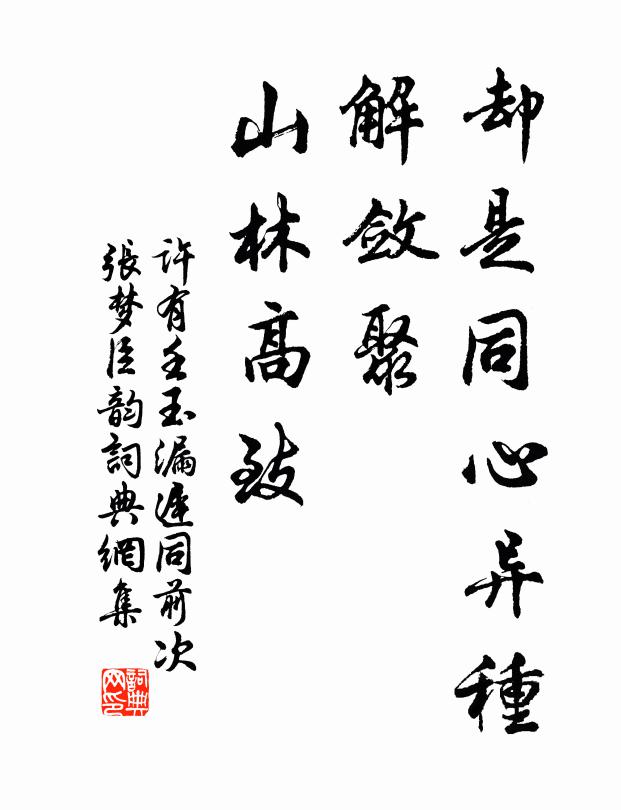 却是同心异種
解斂聚
山林高致
許有壬玉漏遲同前次
張梦臣韵詞典網集
詞典网印